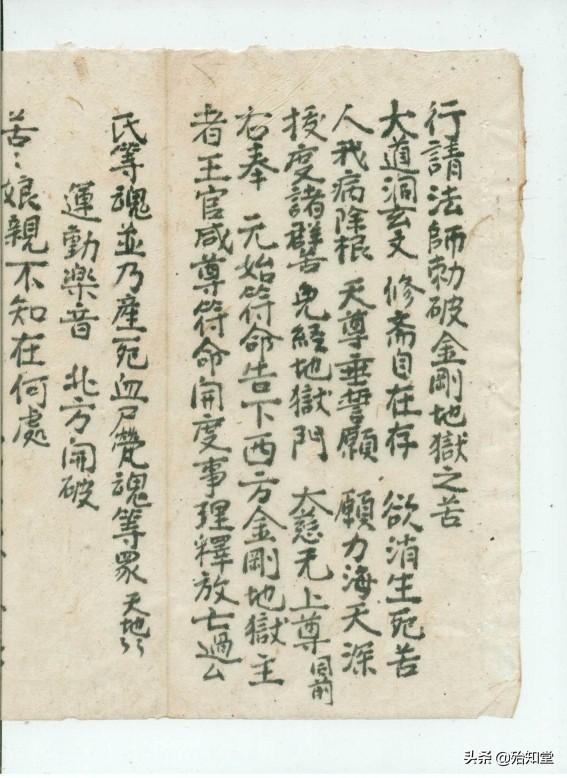 行請法師勅破金剛地獄之苦
大道洞玄文 修斋自在存 欲消生死苦
人我病除根 天尊垂誓願 願力海天深
拔度諸群苦 免經地獄門 大慈无上尊 同前
右奉 元始符命告下西方金剛地獄主
者王官咸尊符命開度事理釋放亡過厶
氏等魂並乃産死血尸魂等眾 天地
運動樂音 北方開破
苦〻娘親不知在何處
头条@殆知堂